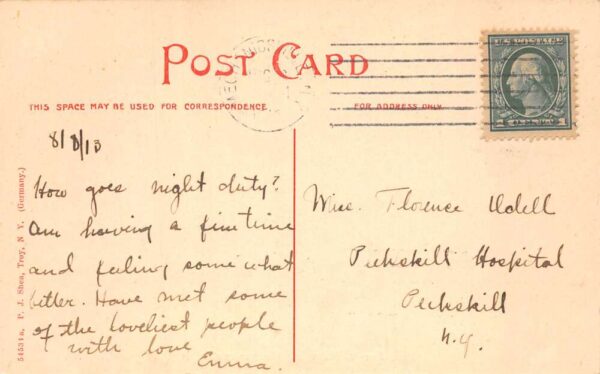 POST CARD
THIS SPACE MAY BE USED FOR CORRESPONDENCE.
FOR ADDRESS ONLY.
U.S. POSTAGE
8/8/13
How goes night duty?
Am having a fine time
and feeling somewhat
better. Have met some
of the loveliest people
with love
Emma.
Miss. Florence Udell
Piekskill Hospital
Peekskill
N.Y.
545534a, P. J. Shea, Troy, N. Y. (Germany.)